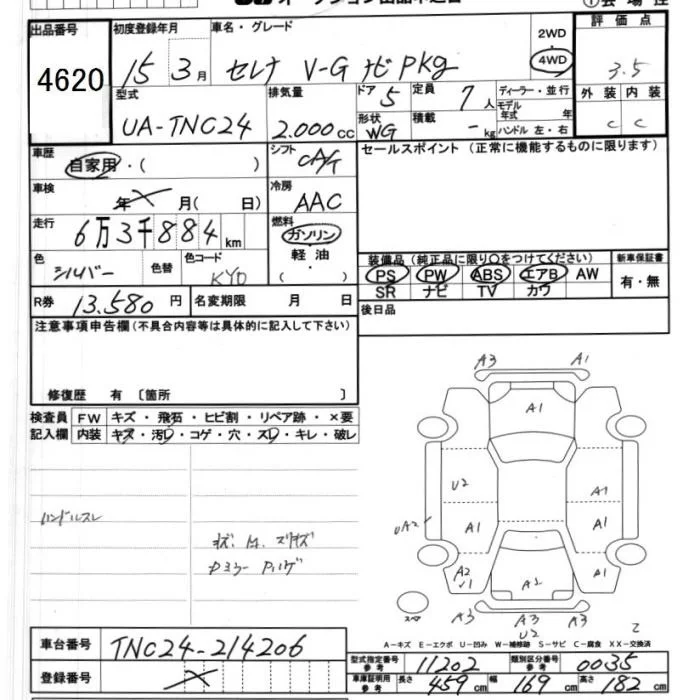 出品番号 初度登録年月 車名・グレード 2WD 評価点
4620 15年 3月 セレナ V-G ナビ pkg 4WD 3.5
型式 排気量 ドア 5 定員 7人 ディーラー・並行 外装 内装
UA-TNC24 2.000cc 形状 WG 積載 -kg モデル年式 年 ハンドル 左・右 C C
車歴 自家用・( ) シフト CA/T セールスポイント (正常に機能するものに限ります)
車検 年 X 月( 日) 冷房 AAC
走行 6万3千884km 燃料 ガソリン
軽油 ・ ( )
装備品 (純正品に限り○をつけてください) 新車保証書
色 シルバー 色替 色コード KY0
PS PW ABS エアB AW 有・無
SR ナビ TV カワ
R券 13.580円 名変期限 月 日 後日品
注意事項申告欄(不具合内容等は具体的に記入して下さい)
修復歴 有 〔箇所 〕
検査員 FW キズ・飛石・ヒビ割・リペア跡・×要
記入欄 内装 キズ・汚・コゲ・穴・スレ・キレ・破レ
A3 A1
A1
U2 A1
A1 A1
A2 A1
A3 A3 A3
U2
ハンドルスレ
スペア
車台番号 TNC24-214206
登録番号 X
A-キズ E-エクボ U-凹み W-補修跡 S-サビ C-腐食 XX-交換済
型式指定番号 参考 11202 類別区分番号 参考 0035
車庫証明用 参考 長さ 459cm 幅 169cm 高さ 182cm